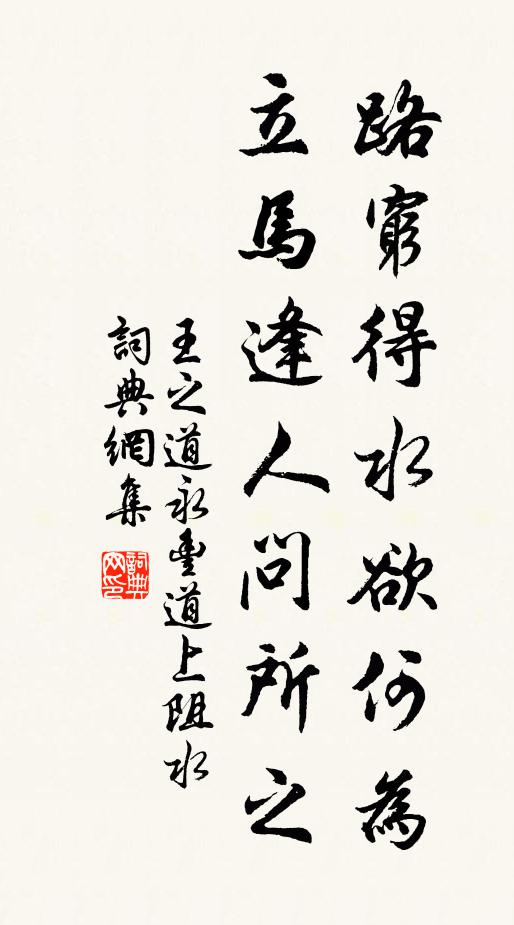 路窮得水欲何為
立馬逢人問所之
王之道永豐道上阻水
詞典網集
詞典網印